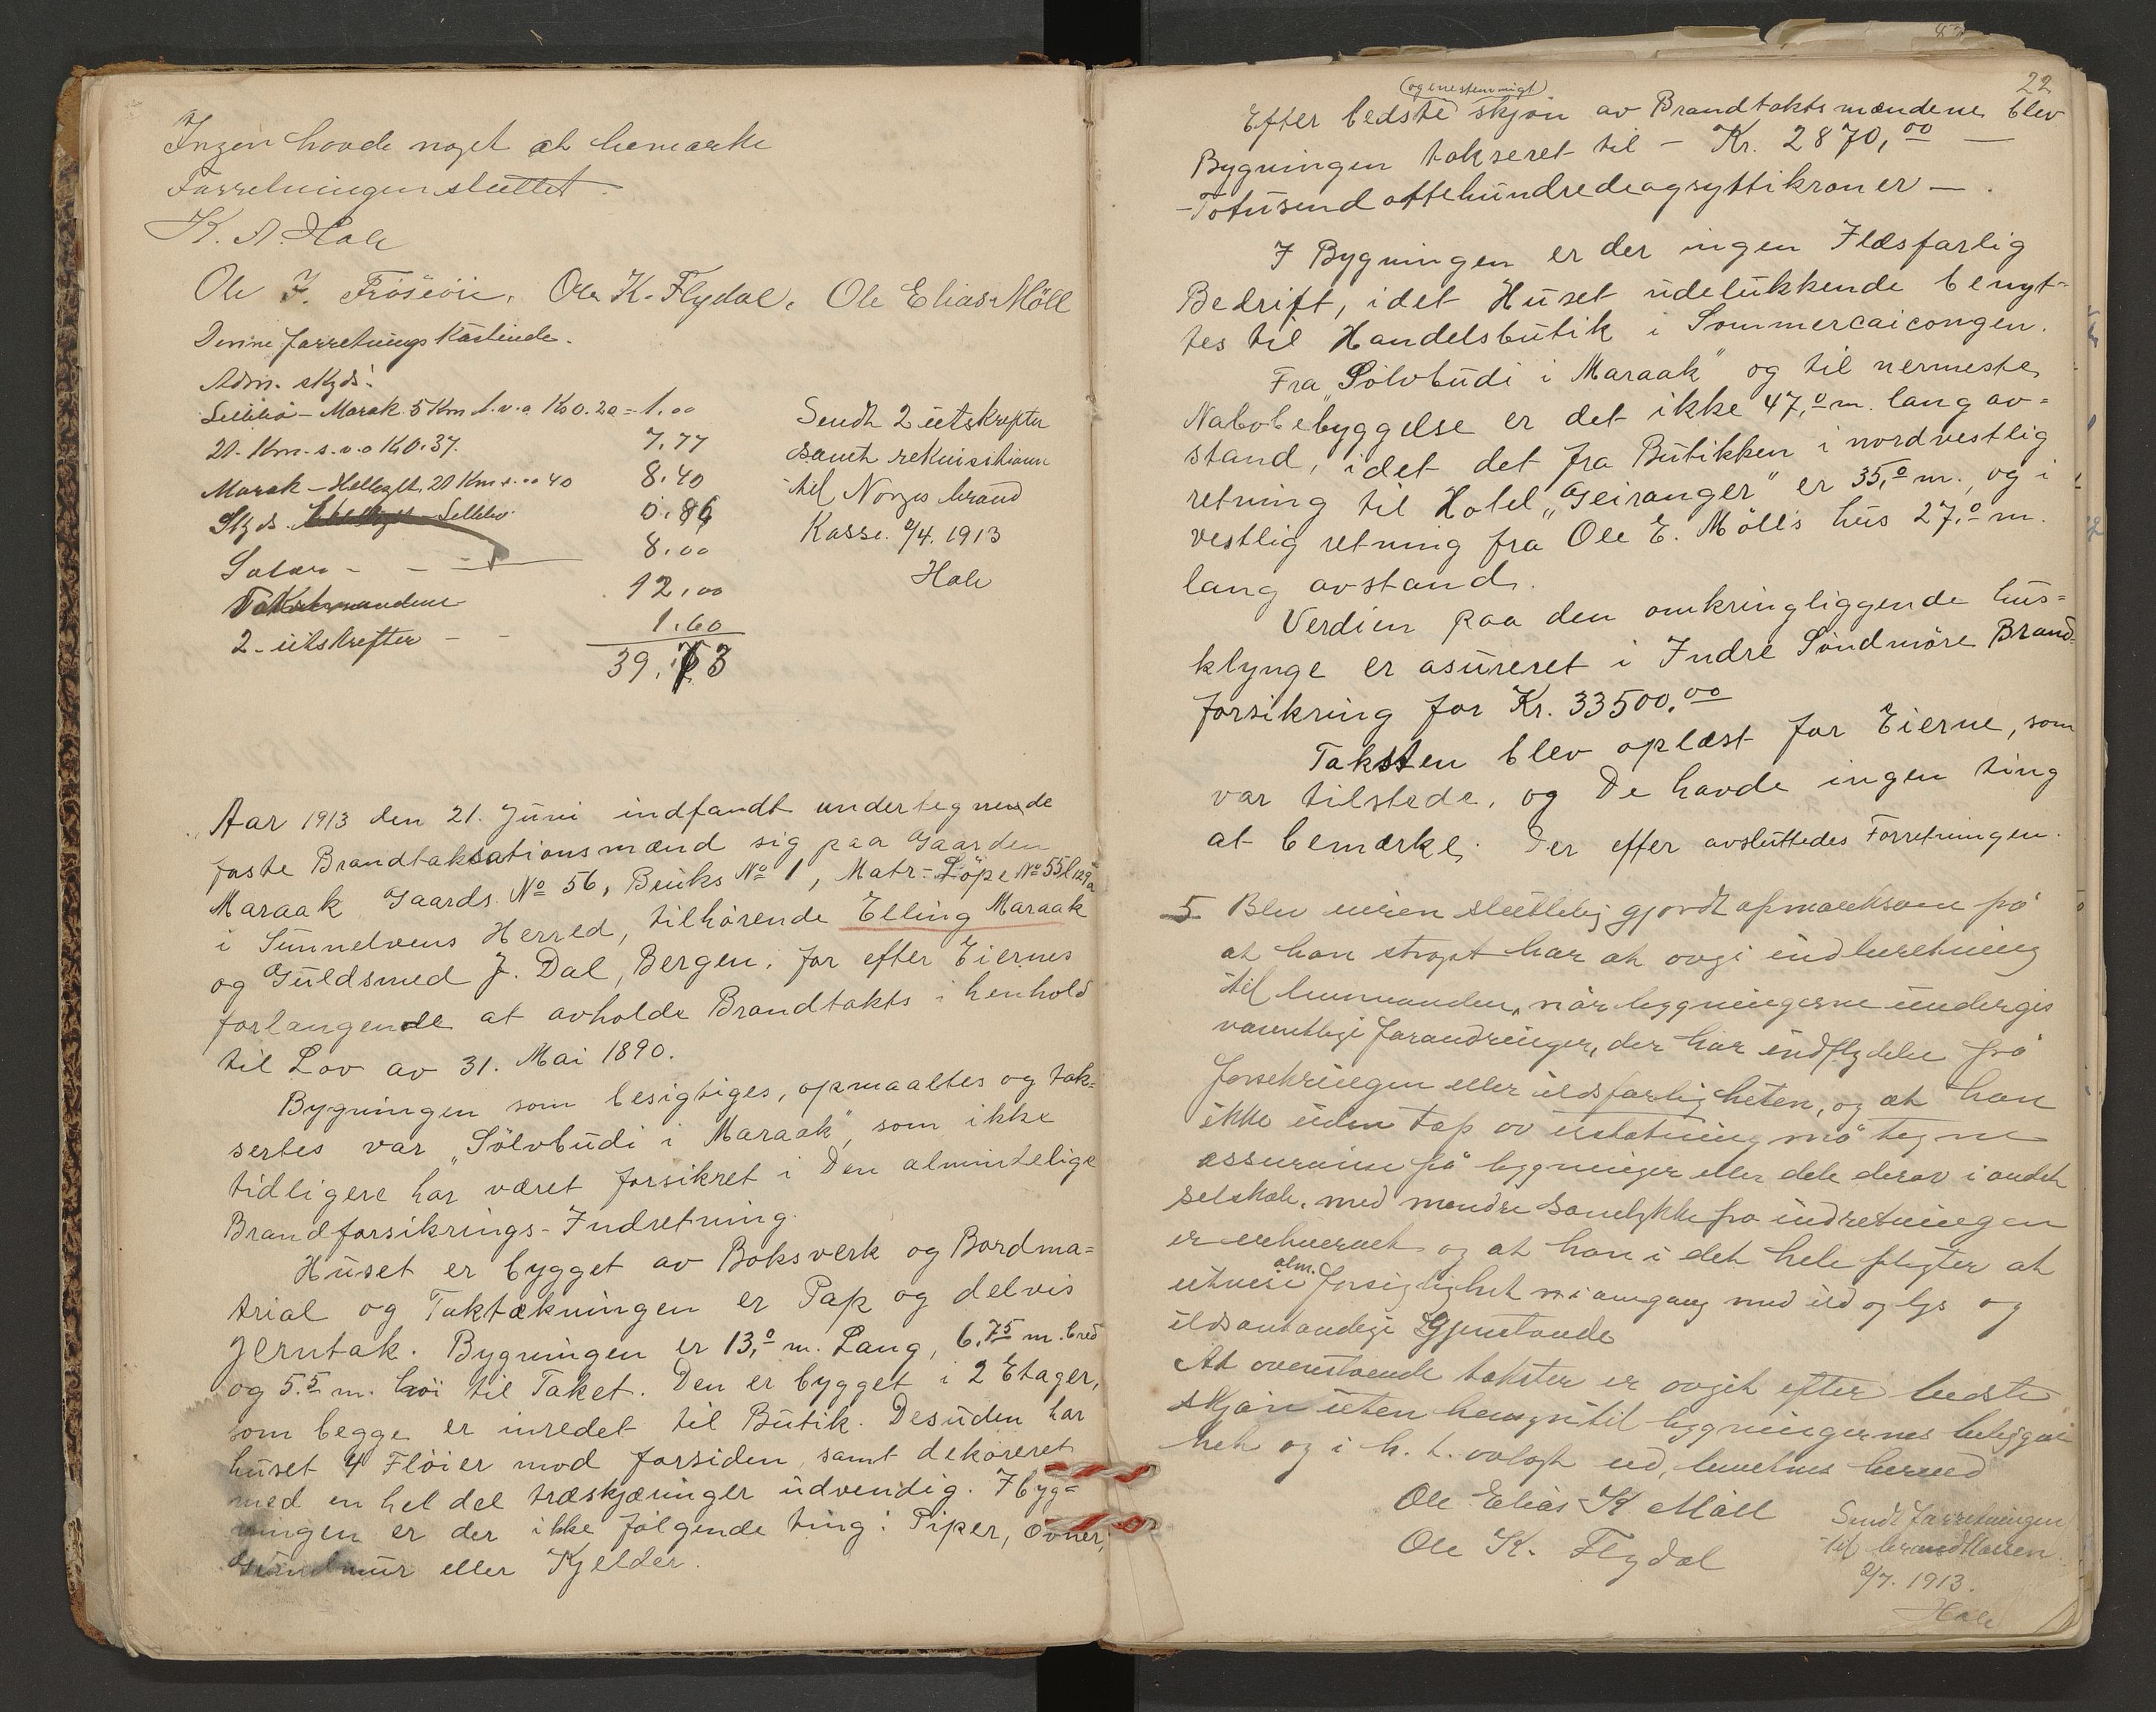 Ingen havde noget at bemærke
Forretningen sluttet.
K. A. Hole
Ole J. Frøseøie. Ole K. Flydal. Ole Elias Möll
Denne forretnings kostende.
Adm. skyds:
Lillebö - Marak 5 Km l.v.a K 0.20 = 1.00
20. Km. s.v.a K 0.37. 7.77
Marak - Hellesylt, 20 Km s. a 40 8.40
Skyds 0.86
Salær - - - 8.00
Takstmændene 12.00
2 - utskrefter - - 1.60
39.63
Sendt 2 utskrefter
samt rekvisition
til Norges brand
Kasse. 9/4. 1913
Hole
Aar 1913 den 21. Juni indfandt undertegnende
faste Brandtaksationsmænd sig paa Gaarden
Maraak Gaards No 56, Bruks No 1, Matr-Löpe No 55 l 129a
i Sunnelvens Herred, tilhörende Elling Maraak
og Guldsmed J. Dal, Bergen. for efter Eiernes
forlangende at avholde Brandtakts i henhold
til Lov av 31. Mai 1890.
Bygningen som besigtiges, opmaaltes og tak-
sertes var "Sölvbudi i Maraak", som ikke
tidligere har været forsikret i Den almindelige
Brandforsikrings-Indretning.
Huset er bygget av Boksverk og Bordma=
trial og Taktækningen er Pap og delvis
Jerntak. Bygningen er 13,0 m. Lang, 6.75 m. bred
og 5.5 m. höi til Taket. Den er bygget i 2 Etager,
som begge er inredet til Butik. Desuden har
huset 4 Flöier mod forsiden, samt dekoreret
med en hel del træskjæringer udvendig. I byg=
ningen er der ikke følgende ting: Piper, Ovner,
Grundmur eller Kjelder.
22
(og enestemmigt)
Efter bedste skjön av Brandtaktsmændene blev
Bygningen takseret til - Kr. 2870,00 —
-Totusend ottehundredeogsyttikroner — .
I Bygningen er der ingen Ildsfarlig
Bedrift, idet Huset udelukkende benyt-
tes til Handelsbutik i Sommercaicongen.
Fra "Sölvbudi i Maraak" og til nermeste
Nabobebyggelse er det ikke 47,0 m. lang av=
stand, idet det fra Butikken i nordvestlig
retning til Hotel "Geiranger" er 35,0 m., og i
vestlig retning fra Ole E. Möll's hus 27,0 m.
lang avstand.
Verdien paa den omkringliggende hus=
klynge er asureret i Indre Söndmöre Brand-
forsikring for Kr. 33500.00
Taksten blev oplæst for Eierne, som
var tilstede, og De havde ingen ting
at bemærke. Der efter avsluttedes Forretningen.
5. Blev eieren sluttelig gjordt opmærksom på
at han stragt har at avgi indberetning
til lensmanden, når bygningerne undergis
væsentlige forandringer, der har indflydelse på
forsekringen eller ildsfarligheten, og at han
ikke uden tap av erstatning må tegne
assuranse på bygninger eller dele derav i andet
selskab, med mendre samtykke fra indretningen
er erhvervet og at han i det hele pligter at
utvise alm. forsigtighet m i omgang med ild og lys og
ildsantændige Gjenstande
At ovenstående takster er avgit efter bedste
skjön uten hensyn til bygningernes beliggen
het og i h. t. avlagt ed, bevetnes herved
Ole Elias K Möll
Ole K. Flydal
Sendt forretningen
til brandkassen
2/7. 1913.
Hole